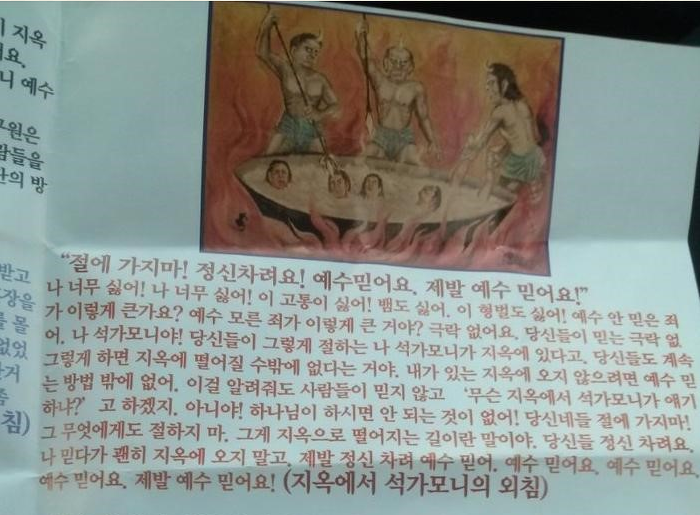 지옥
요.
니 예수
원은
람들을
의 방
받고
장을
를 몰
없었
거
침)
"절에 가지마! 정신차려요! 예수믿어요. 제발 예수 믿어요!"
나 너무 싫어! 나 너무 싫어! 이 고통이 싫어! 뱀도 싫어. 이 형벌도 싫어! 예수 안 믿은 죄
가 이렇게 큰가요? 예수 모른 죄가 이렇게 큰 거야? 극락 없어요. 당신들이 믿는 극락 없
어. 나 석가모니야! 당신들이 그렇게 절하는 나 석가모니가 지옥에 있다고. 당신들도 계속
그렇게 하면 지옥에 떨어질 수밖에 없다는 거야. 내가 있는 지옥에 오지 않으려면 예수 믿
는 방법 밖에 없어. 이걸 알려줘도 사람들이 믿지 않고 '무슨 지옥에서 석가모니가 얘기
하냐?' 고 하겠지. 아니야! 하나님이 하시면 안 되는 것이 없어! 당신네들 절에 가지마!
그 무엇에게도 절하지 마. 그게 지옥으로 떨어지는 길이란 말이야. 당신들 정신 차려요.
나 믿다가 괜히 지옥에 오지 말고, 제발 정신 차려 예수 믿어. 예수 믿어요, 예수 믿어요
예수 믿어요. 제발 예수 믿어요! (지옥에서 석가모니의 외침)